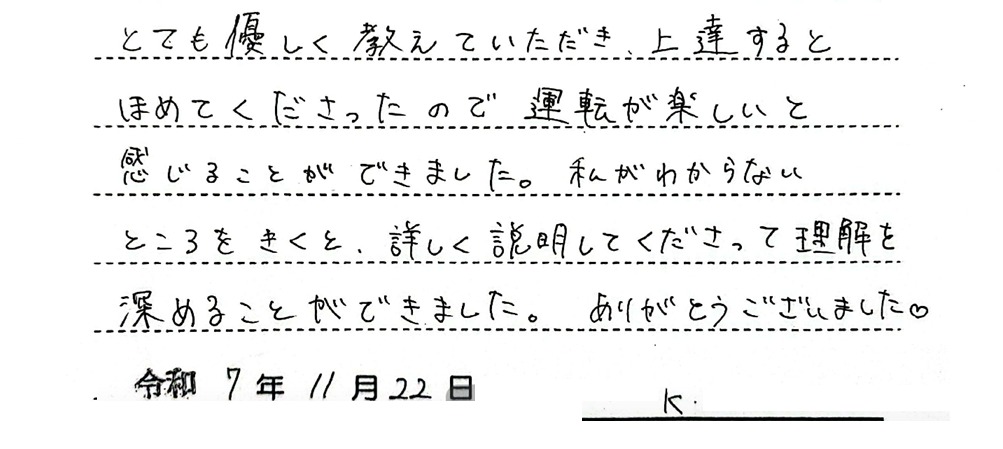 とても優しく教えていただき、上達すると
ほめてくださったので運転が楽しいと
感じることができました。私がわからない
ところをきくと、詳しく説明してくださって理解を
深めることができました。ありがとうございました♡
令和7年11月22日
K.